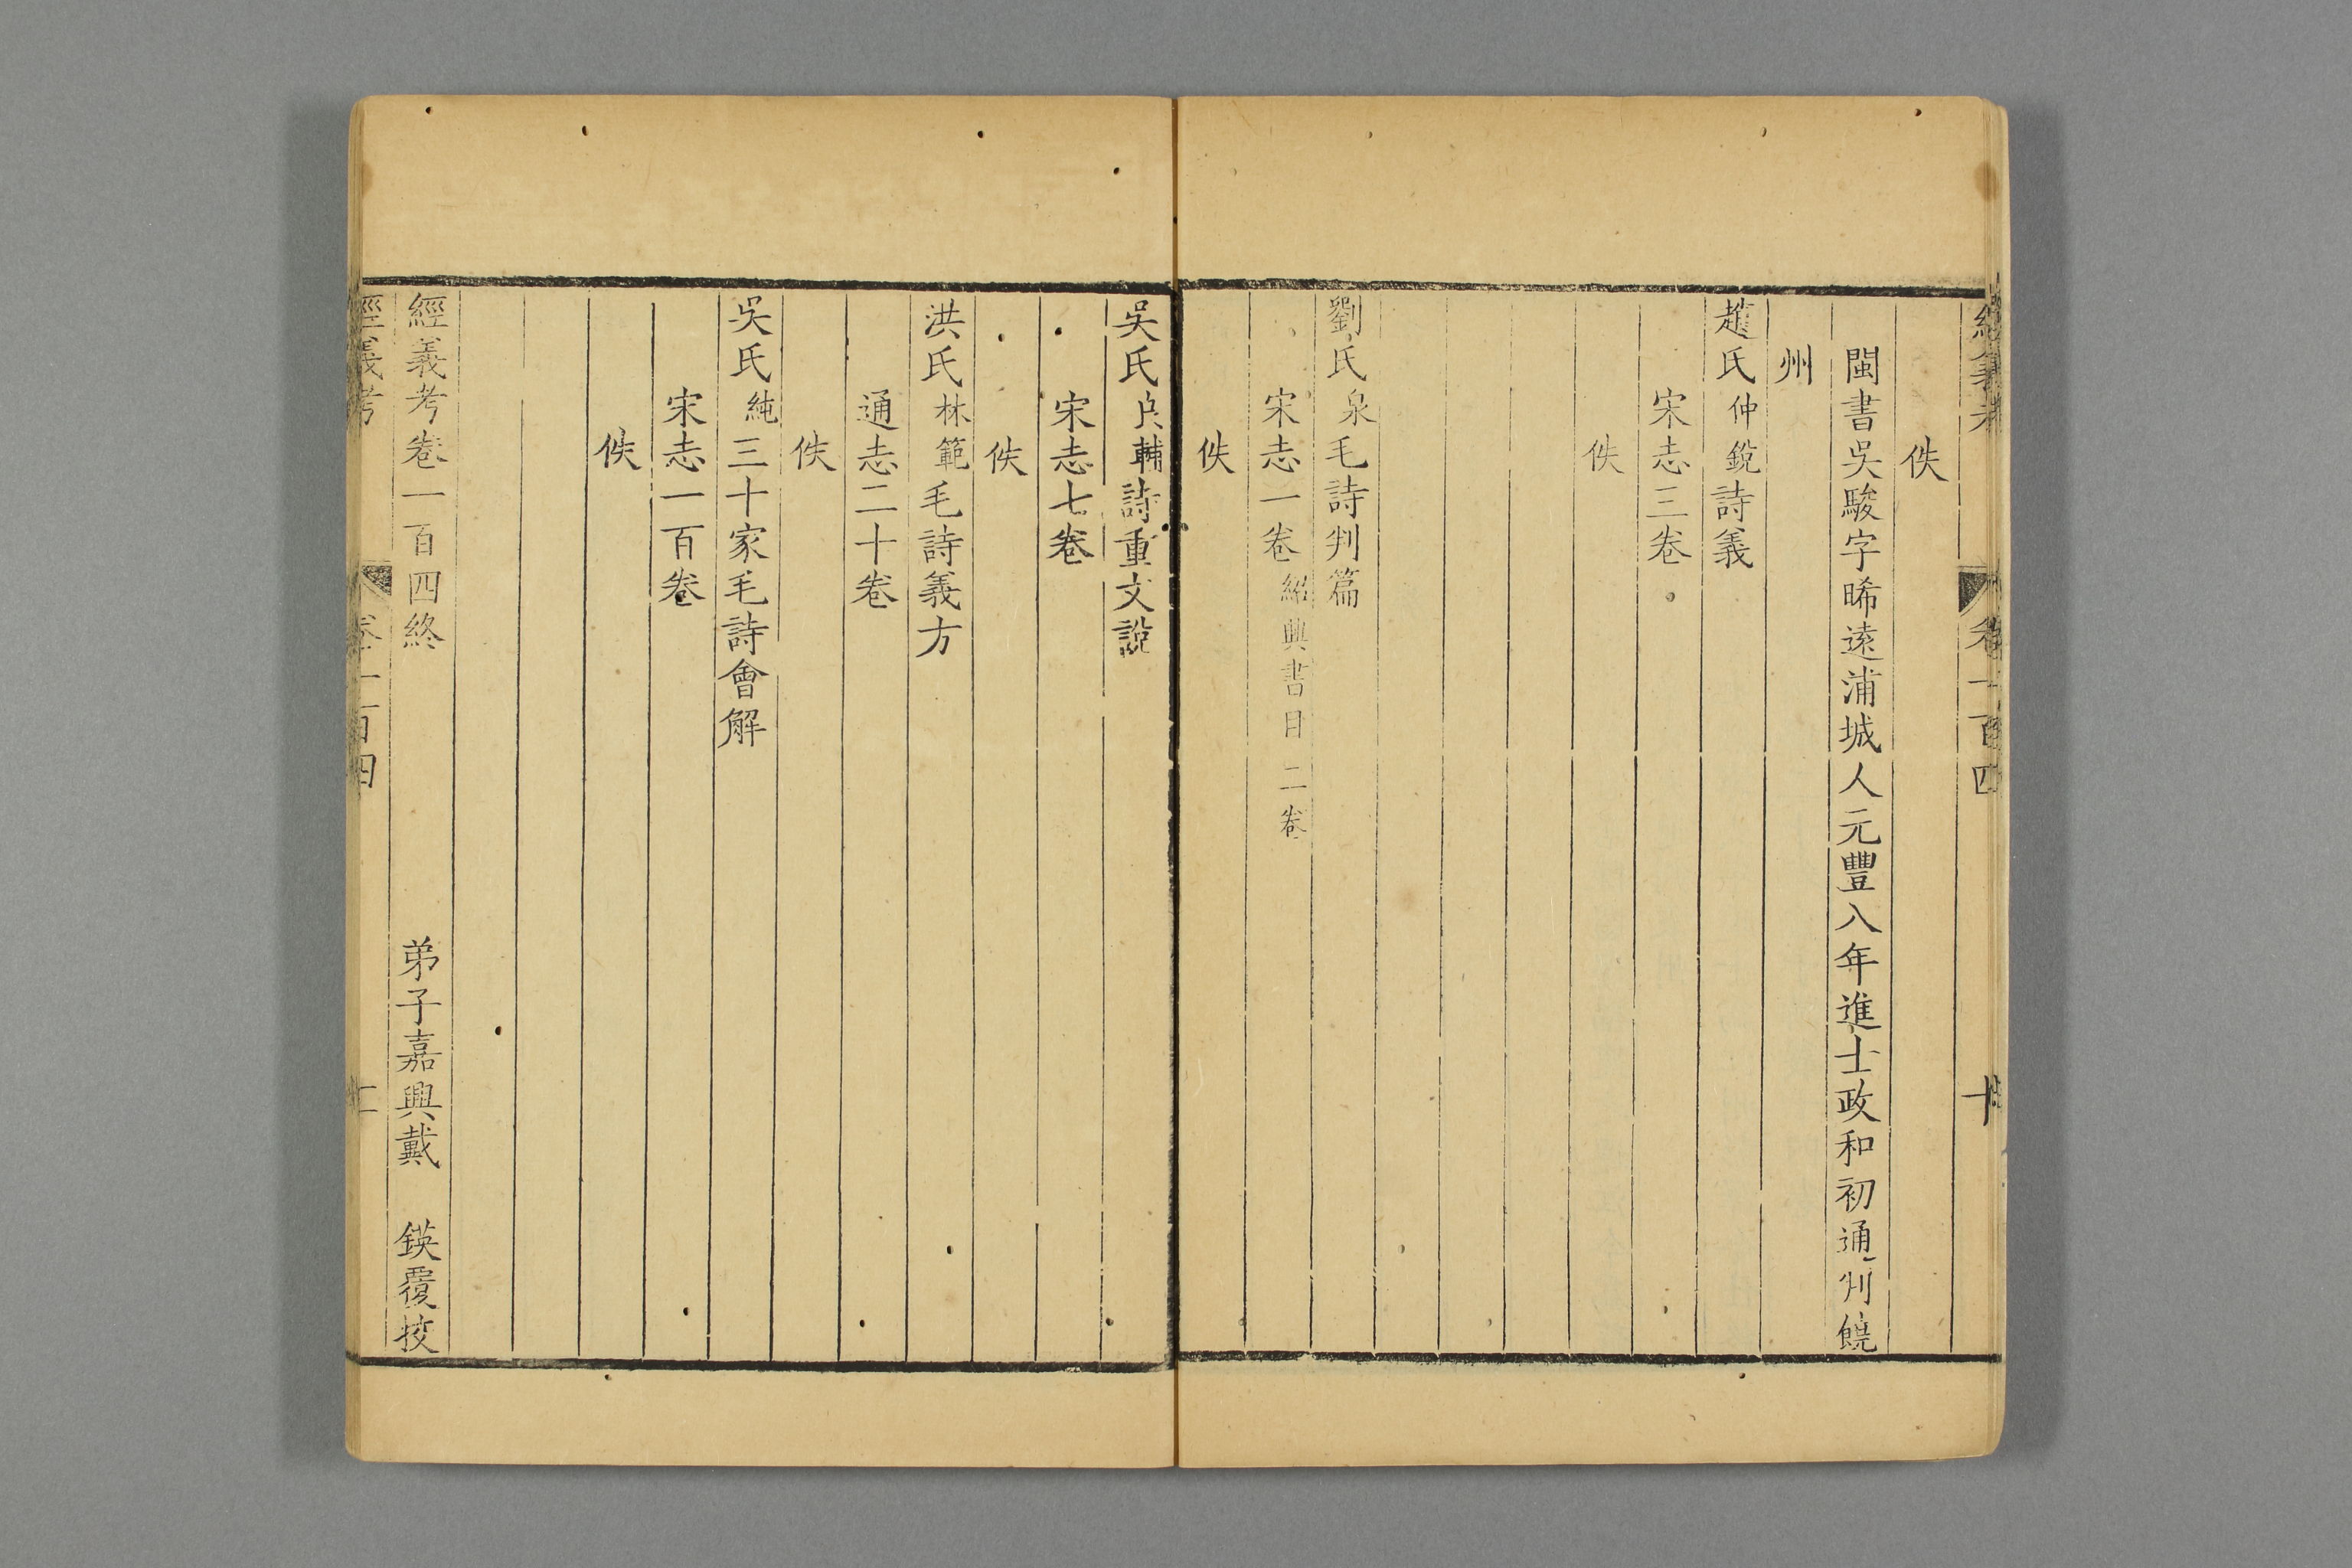 經義考
卷一百四
十
佚
閩書吳駿字晞遠浦城人元豐八年進士政和初通判饒
州
趙氏仲銳詩義
宋志三卷
佚
劉氏泉毛詩判篇
宋志一卷紹興書目二卷
佚
吳氏良輔詩重文說
宋志七卷
佚
洪氏林範毛詩義方
通志二十卷
佚
吳氏純三十家毛詩會解
宋志一百卷
佚
經義考卷一百四終 弟子嘉興戴 鍈覆挍
經義考
卷一百四